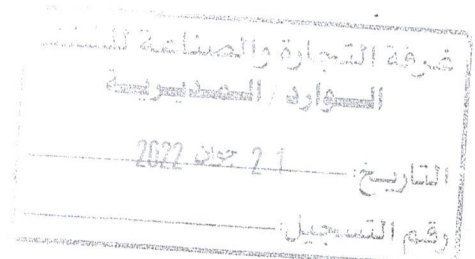 غرفة التجارة والصناعة
الـوارد / المـديريـة
التاريخ: 21 جوان 2022
رقم التسجيل: